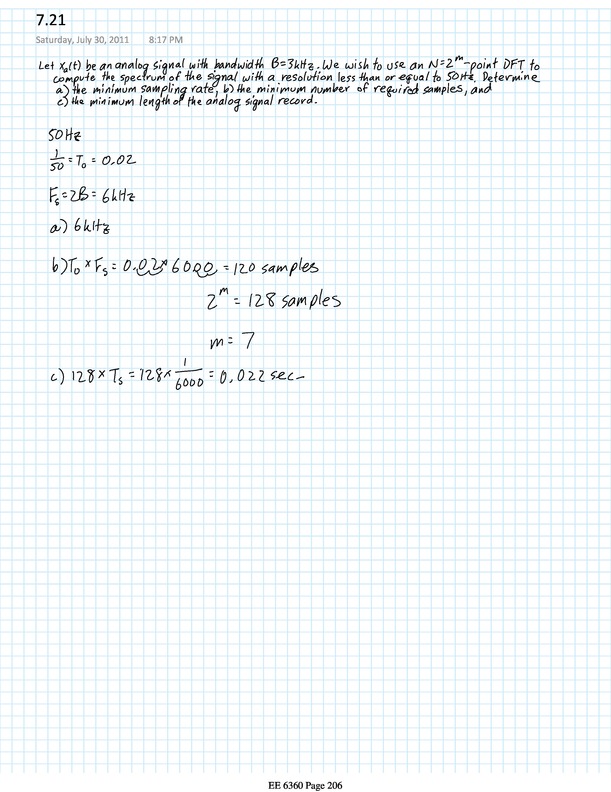 7.21
Saturday, July 30, 2011 8:17 PM
Let xₐ(t) be an analog signal with bandwidth B=3kHz. We wish to use an N=2ᵐ-point DFT to
compute the spectrum of the signal with a resolution less than or equal to 50Hz. Determine
a) the minimum sampling rate, b) the minimum number of required samples, and
c) the minimum length of the analog signal record.
50Hz
1/50 = T₀ = 0.02
Fₛ = 2B = 6kHz
a) 6kHz
b) T₀ × Fₛ = 0.02 × 6000 = 120 samples
2ᵐ = 128 samples
m = 7
c) 128 × Tₛ = 128 × 1/6000 = 0.022 sec
EE 6360 Page 206